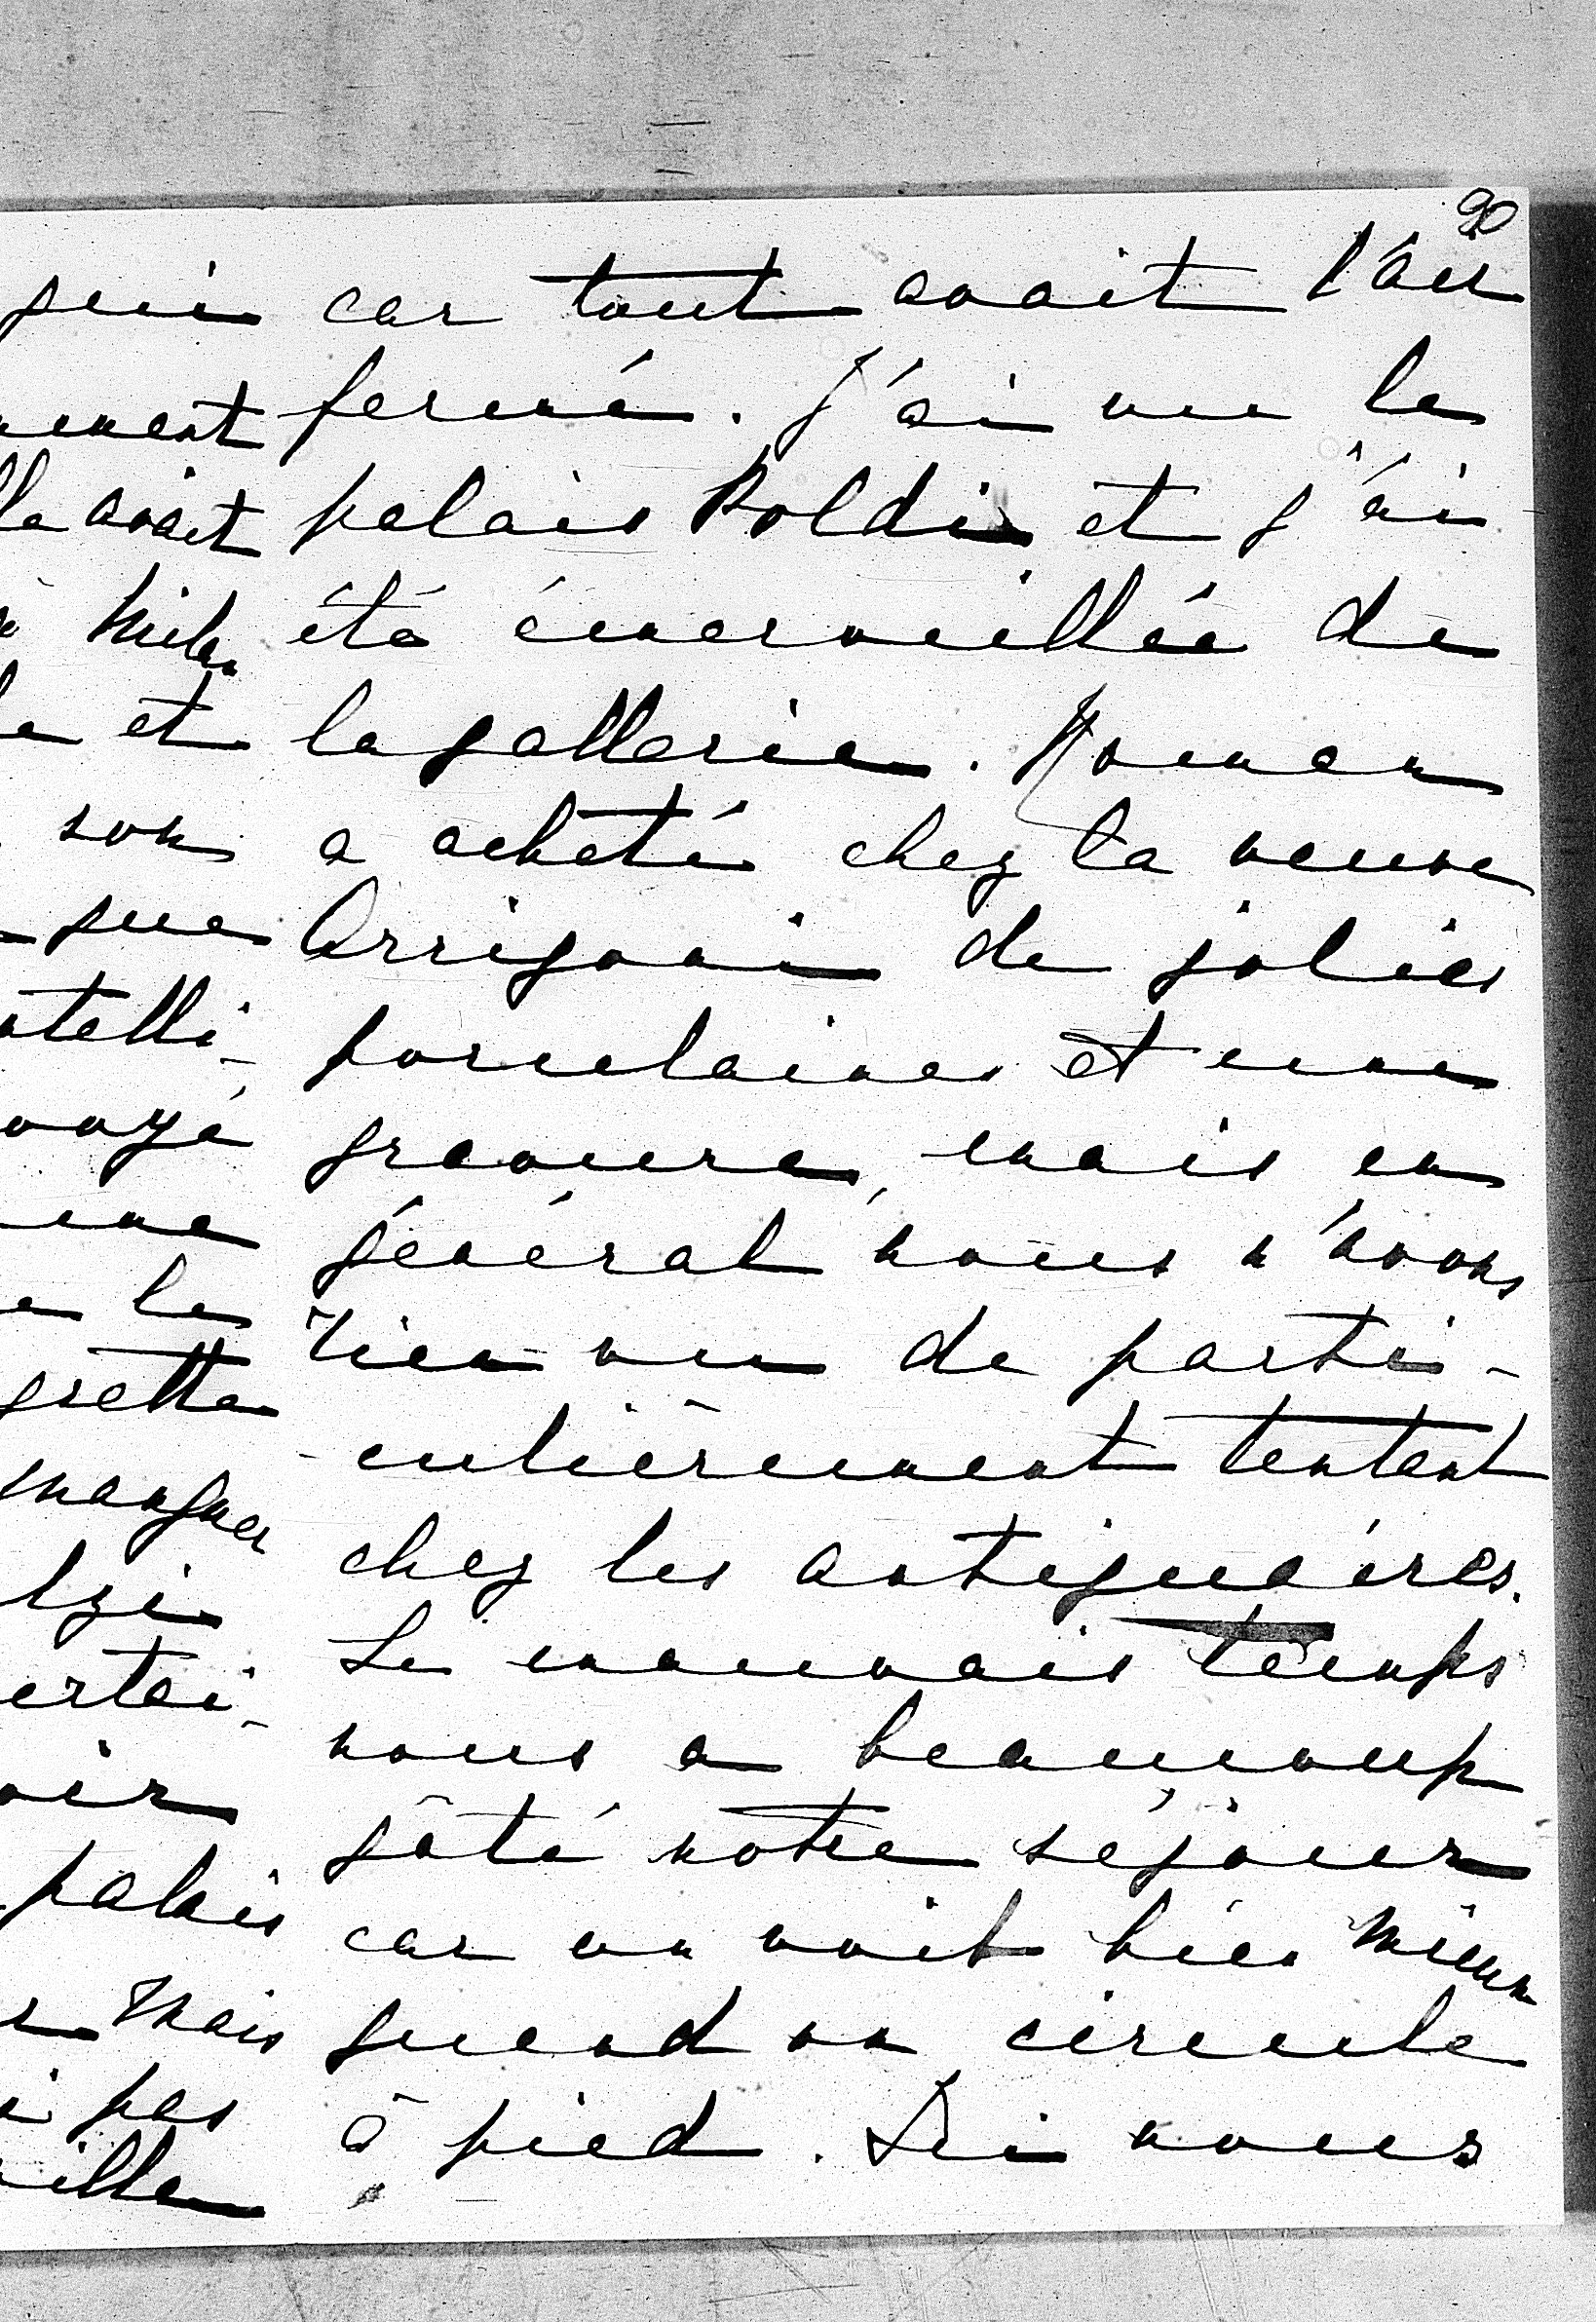 90
car tout avait l'air
fermé. J'ai vu le
palais Poldi et j'ai
été émerveillée de
la gallerie. Maman
a acheté chez la veuve
Arrigoni de jolies
porcelaines et une
gravure, mais en
général nous n'avons
rien vu de parti-
culièrement tentant
chez les antiquaires.
Le mauvais temps
nous a beaucoup
gâté notre séjour
car on voit bien mieux
quand on circule
à pied. Ici nous
qui
avait
Milan
et
son
que
le
manquer
palais
mais
pas